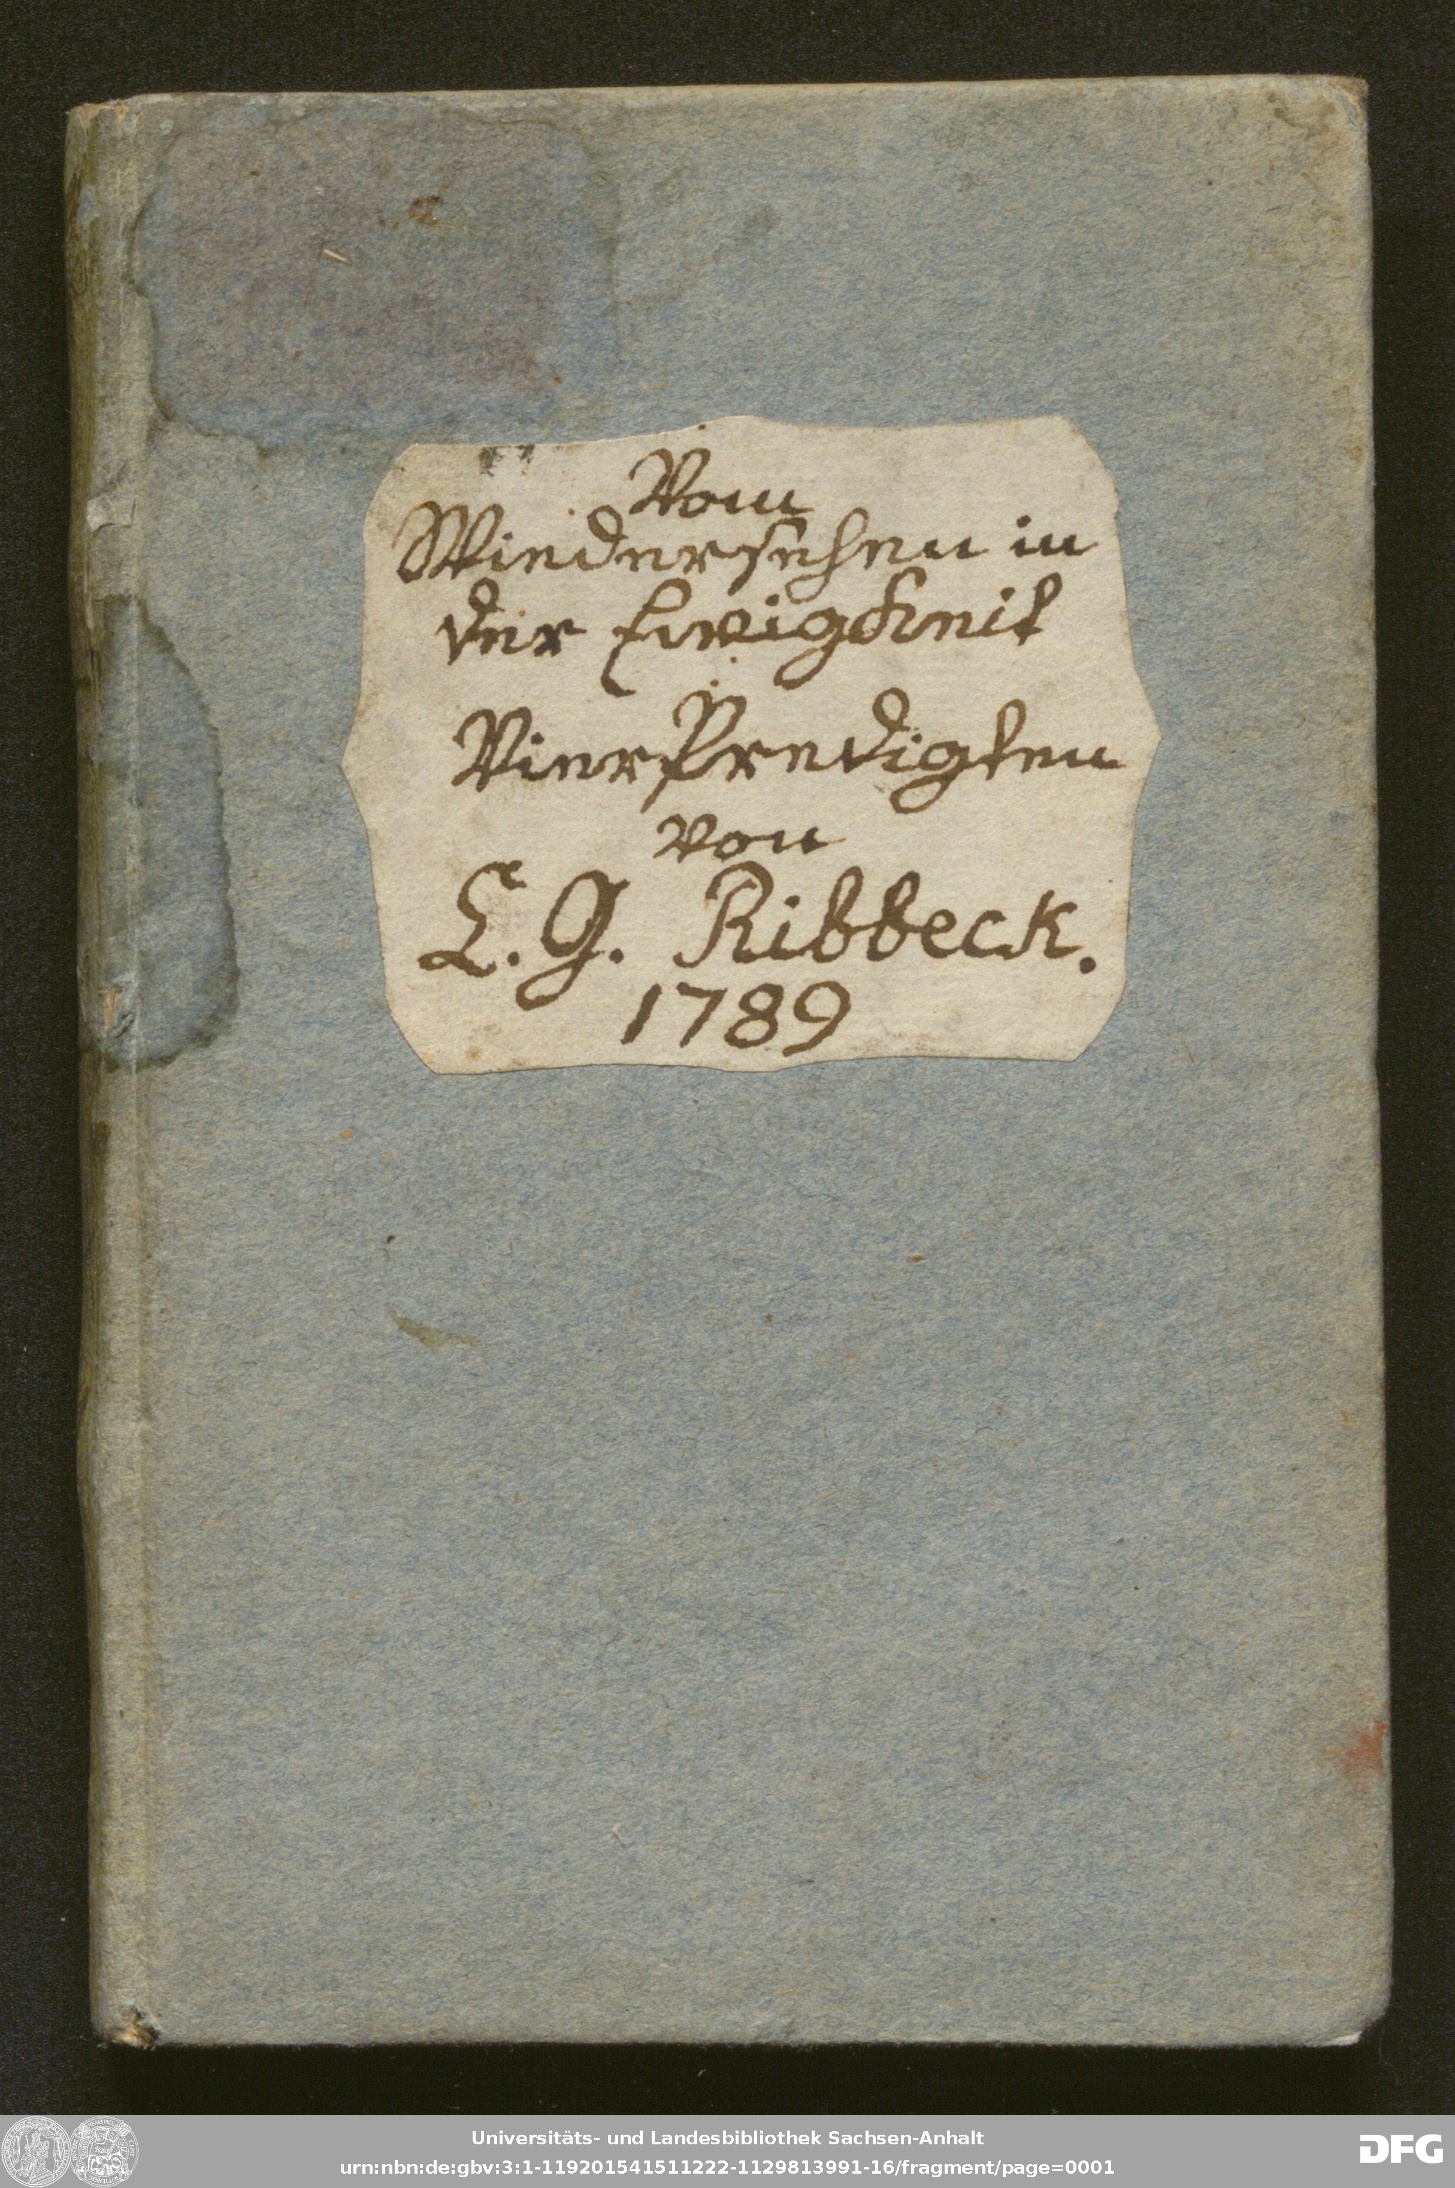 Vom
Wiedersehen in
der Ewigkeit
Vier Predigten
von
C. G. Ribbeck.
1789
Universitäts- und Landesbibliothek Sachsen-Anhalt
urn:nbn:de:gbv:3:1-119201541511222-1129813991-16/fragment/page=0001
DFG